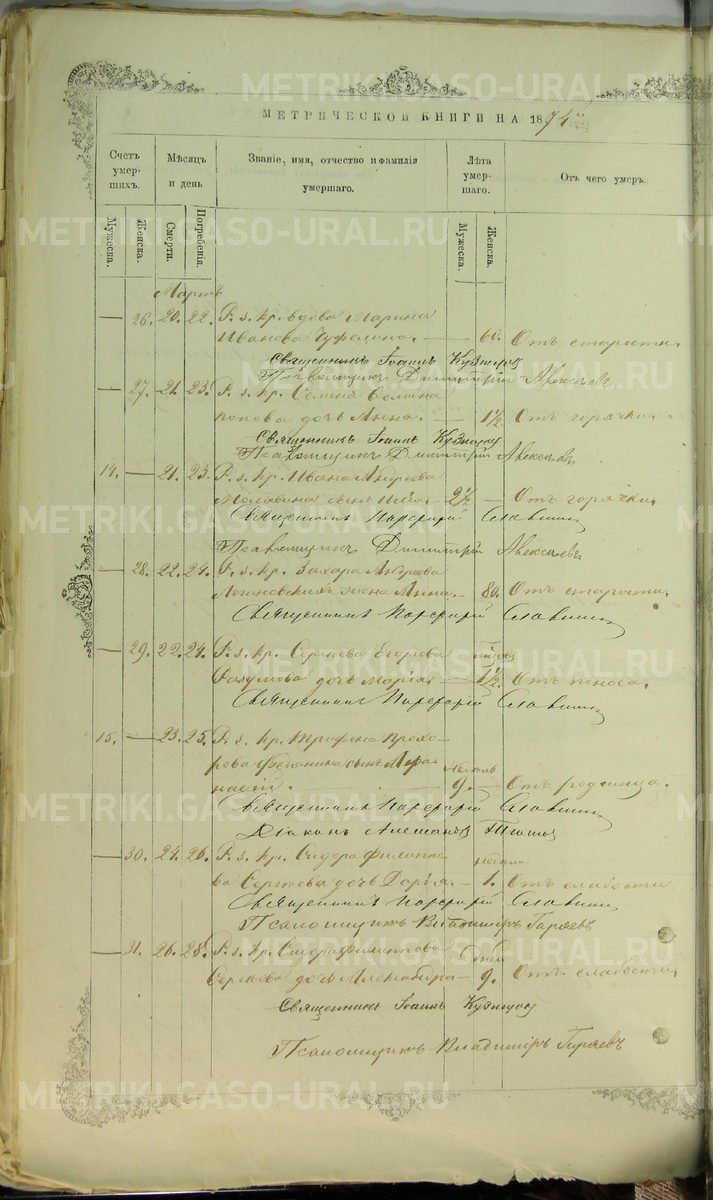 МЕТРИЧЕСКОЙ КНИГИ НА 1874
Счетъ умер- шихъ.
Мѣсяцъ и день
Званіе, имя, отчество и фамилія умершаго.
Лѣта умер- шаго.
Отъ чего умеръ.
Мужеска.
Женска.
Смерти.
Погребенія.
Мужеска.
Женска.
Мартъ
— 26. 20. 22. Р. з. кр. вдова Марина
Иванова — 60. Отъ старости.
Священникъ Іоаннъ Кузнецовъ
Псаломщикъ Димитрій Алексѣевъ
— 27. 21. 23. Р. з. кр.
дочь Анна. — 1½ Отъ горячки.
Священникъ Іоаннъ Кузнецовъ
Псаломщикъ Димитрій Алексѣевъ
14. — 21. 23. Р. з. кр. Ивана Андреева
сынъ 2½ — Отъ горячки.
Священникъ Порфирій Славнинъ
Псаломщикъ Димитрій Алексѣевъ
— 28. 22. 24. Р. з. кр. Захара Андреева
жена Анна. — 80. Отъ старости.
Священникъ Порфирій Славнинъ
— 29. 22. 24. Р. з. кр. Сергѣева Егорова
Разумова дочь Марія. — 1½ Отъ поноса.
Священникъ Порфирій Славнинъ
15. — 23. 25. Р. з. кр. Трифона Прохо-
рова сынъ Афа- недѣль
насій. 9. — Отъ родимца.
Священникъ Порфирій Славнинъ
Діаконъ
— 30. 24. 26. Р. з. кр. Сидора Филиппо-
ва Сергѣева дочь Дарія. — 1. Отъ слабости
Священникъ Порфирій Славнинъ
Псаломщикъ Владиміръ Гаряевъ
— 31. 26. 28. Р. з. кр. Сидора Филиппова дней
Сергѣева дочь Александра — 9. Отъ слабости.
Священникъ Іоаннъ Кузнецовъ
Псаломщикъ Владиміръ Гаряевъ
METRIKI.GASO-URAL.RU